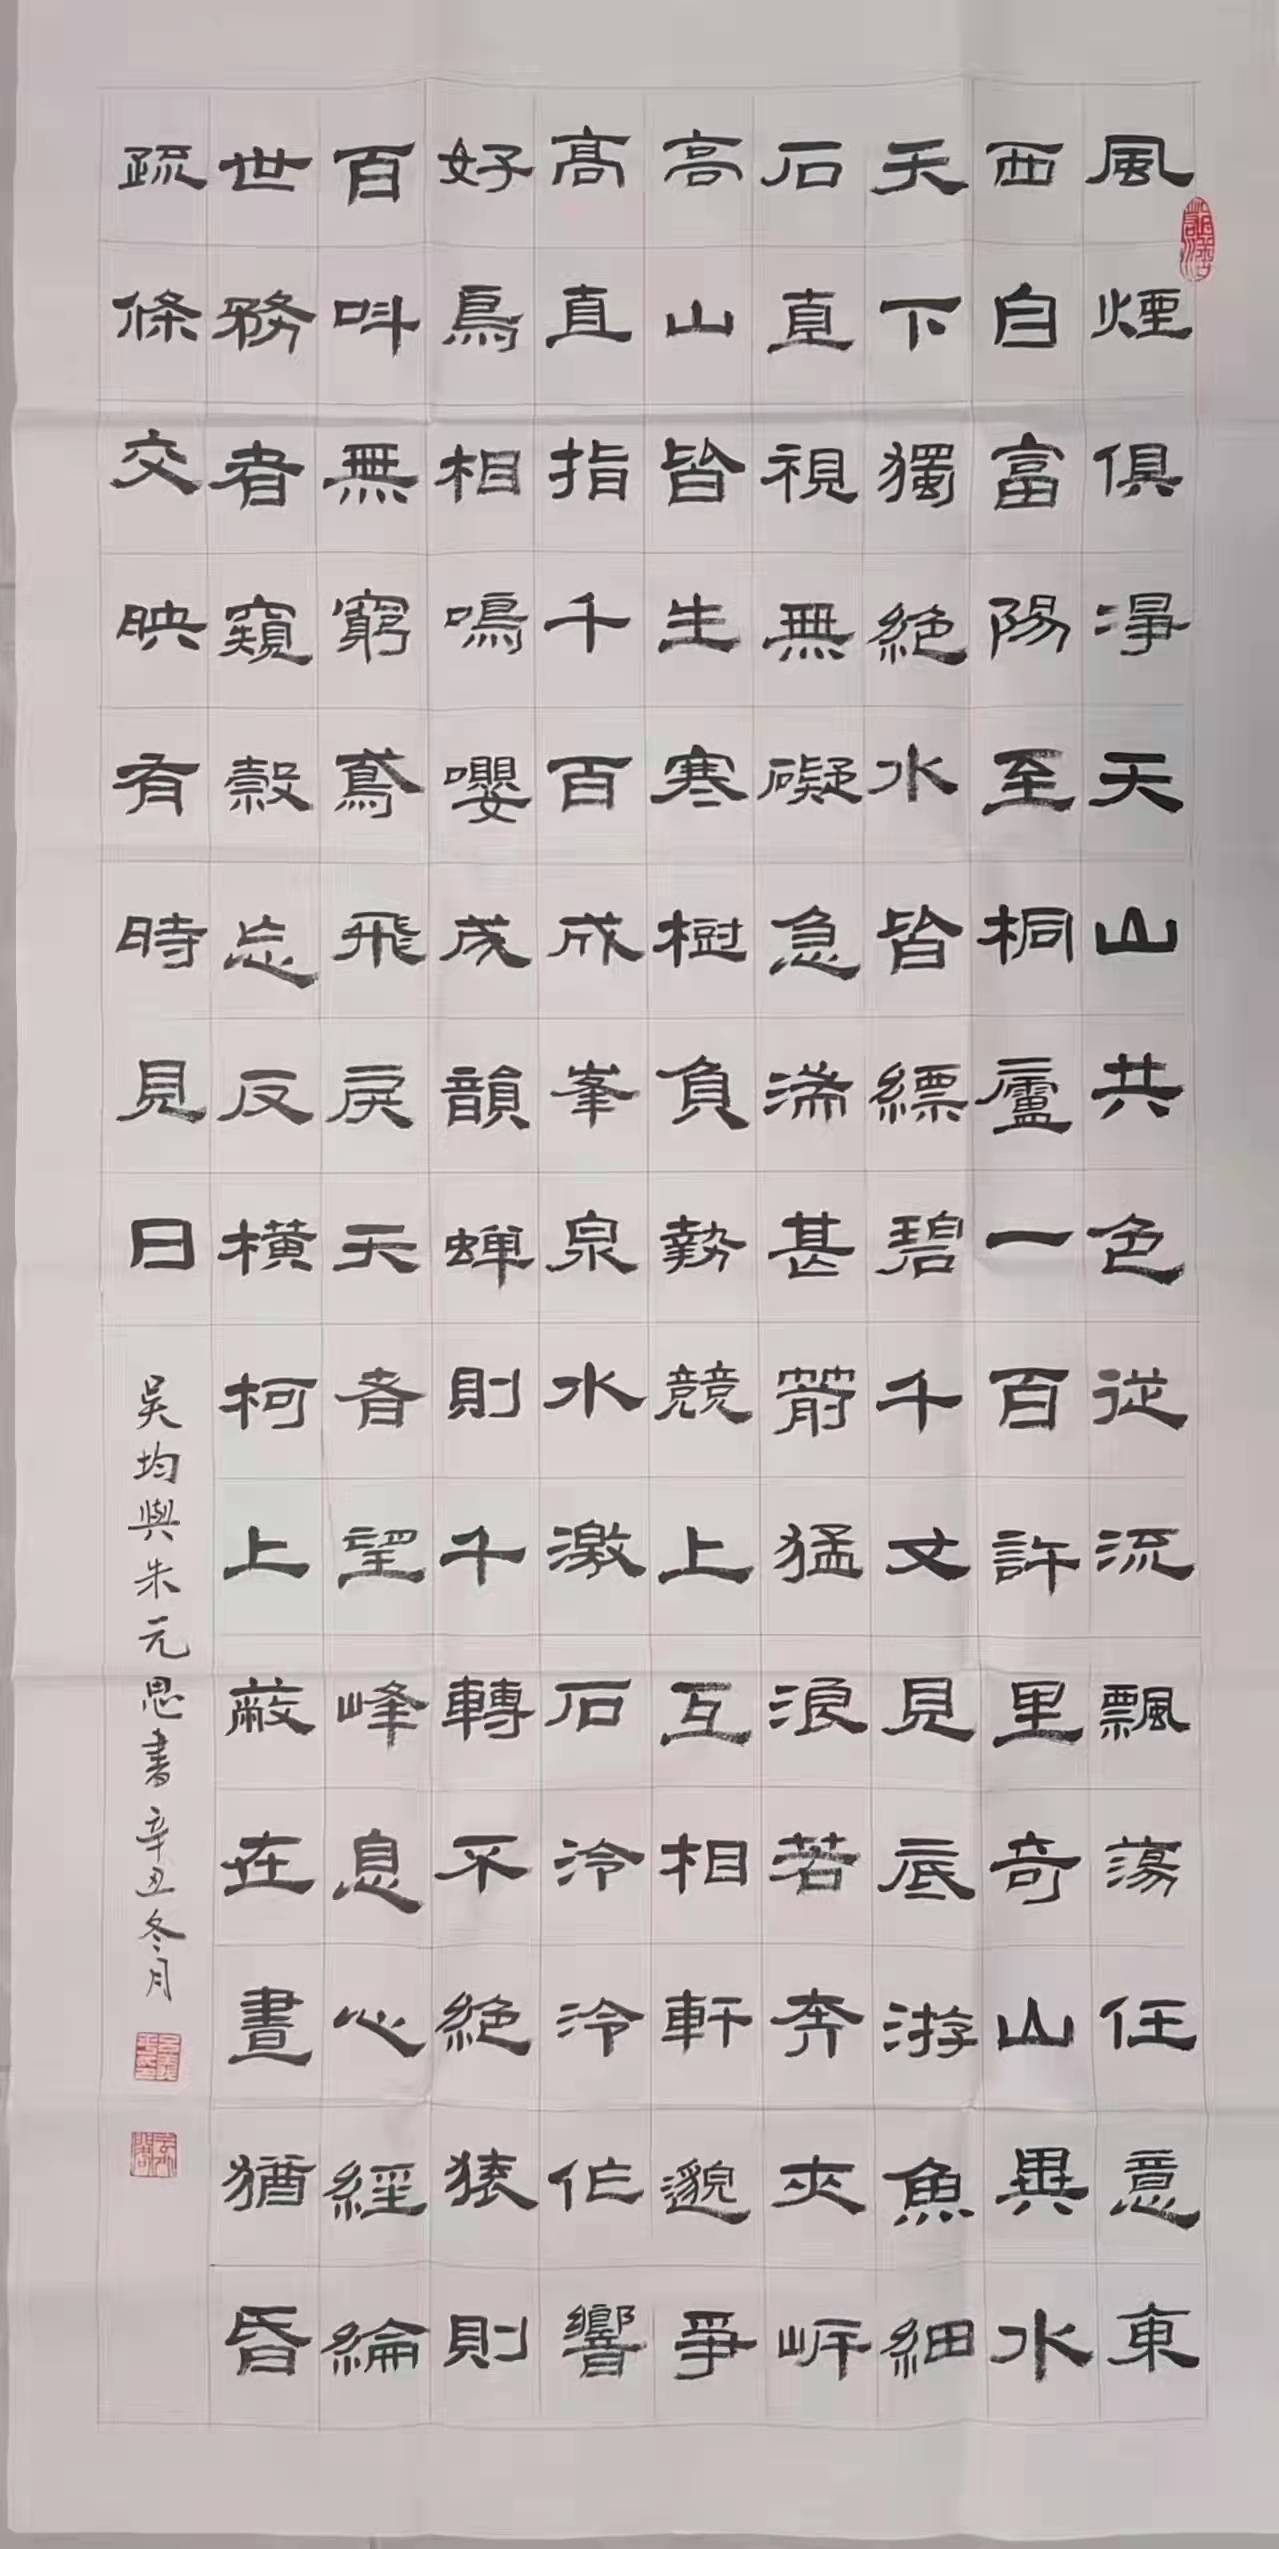 風煙俱淨天山共色從流飄蕩任意東
西自富陽至桐廬一百許里奇山異水
天下獨絕水皆縹碧千丈見底游魚細
石直視無礙急湍甚箭猛浪若奔夾岸
高山皆生寒樹負勢競上互相軒邈爭
高直指千百成峯泉水激石泠泠作響
好鳥相鳴嚶成韻蟬則千轉不絕猿則
百叫無窮鳶飛戾天者望峰息心經綸
世務者窺穀忘反橫柯上蔽在晝猶昏
疏條交映有時見日
吳均與朱元思書辛丑冬月